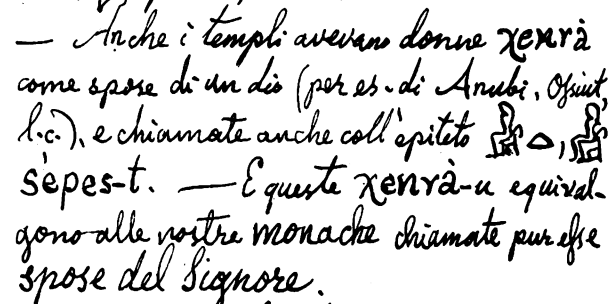 — Anche i templi avevano donne χenrà
come spose di un dio (per es. di Anubi, Ossiut,
l.c.), e chiamate anche coll'epiteto 𓀻𓏏, 𓀻
šepes-t. — E queste χenrà-u equival-
gono alle nostre monache chiamate pur esse
spose del Signore.